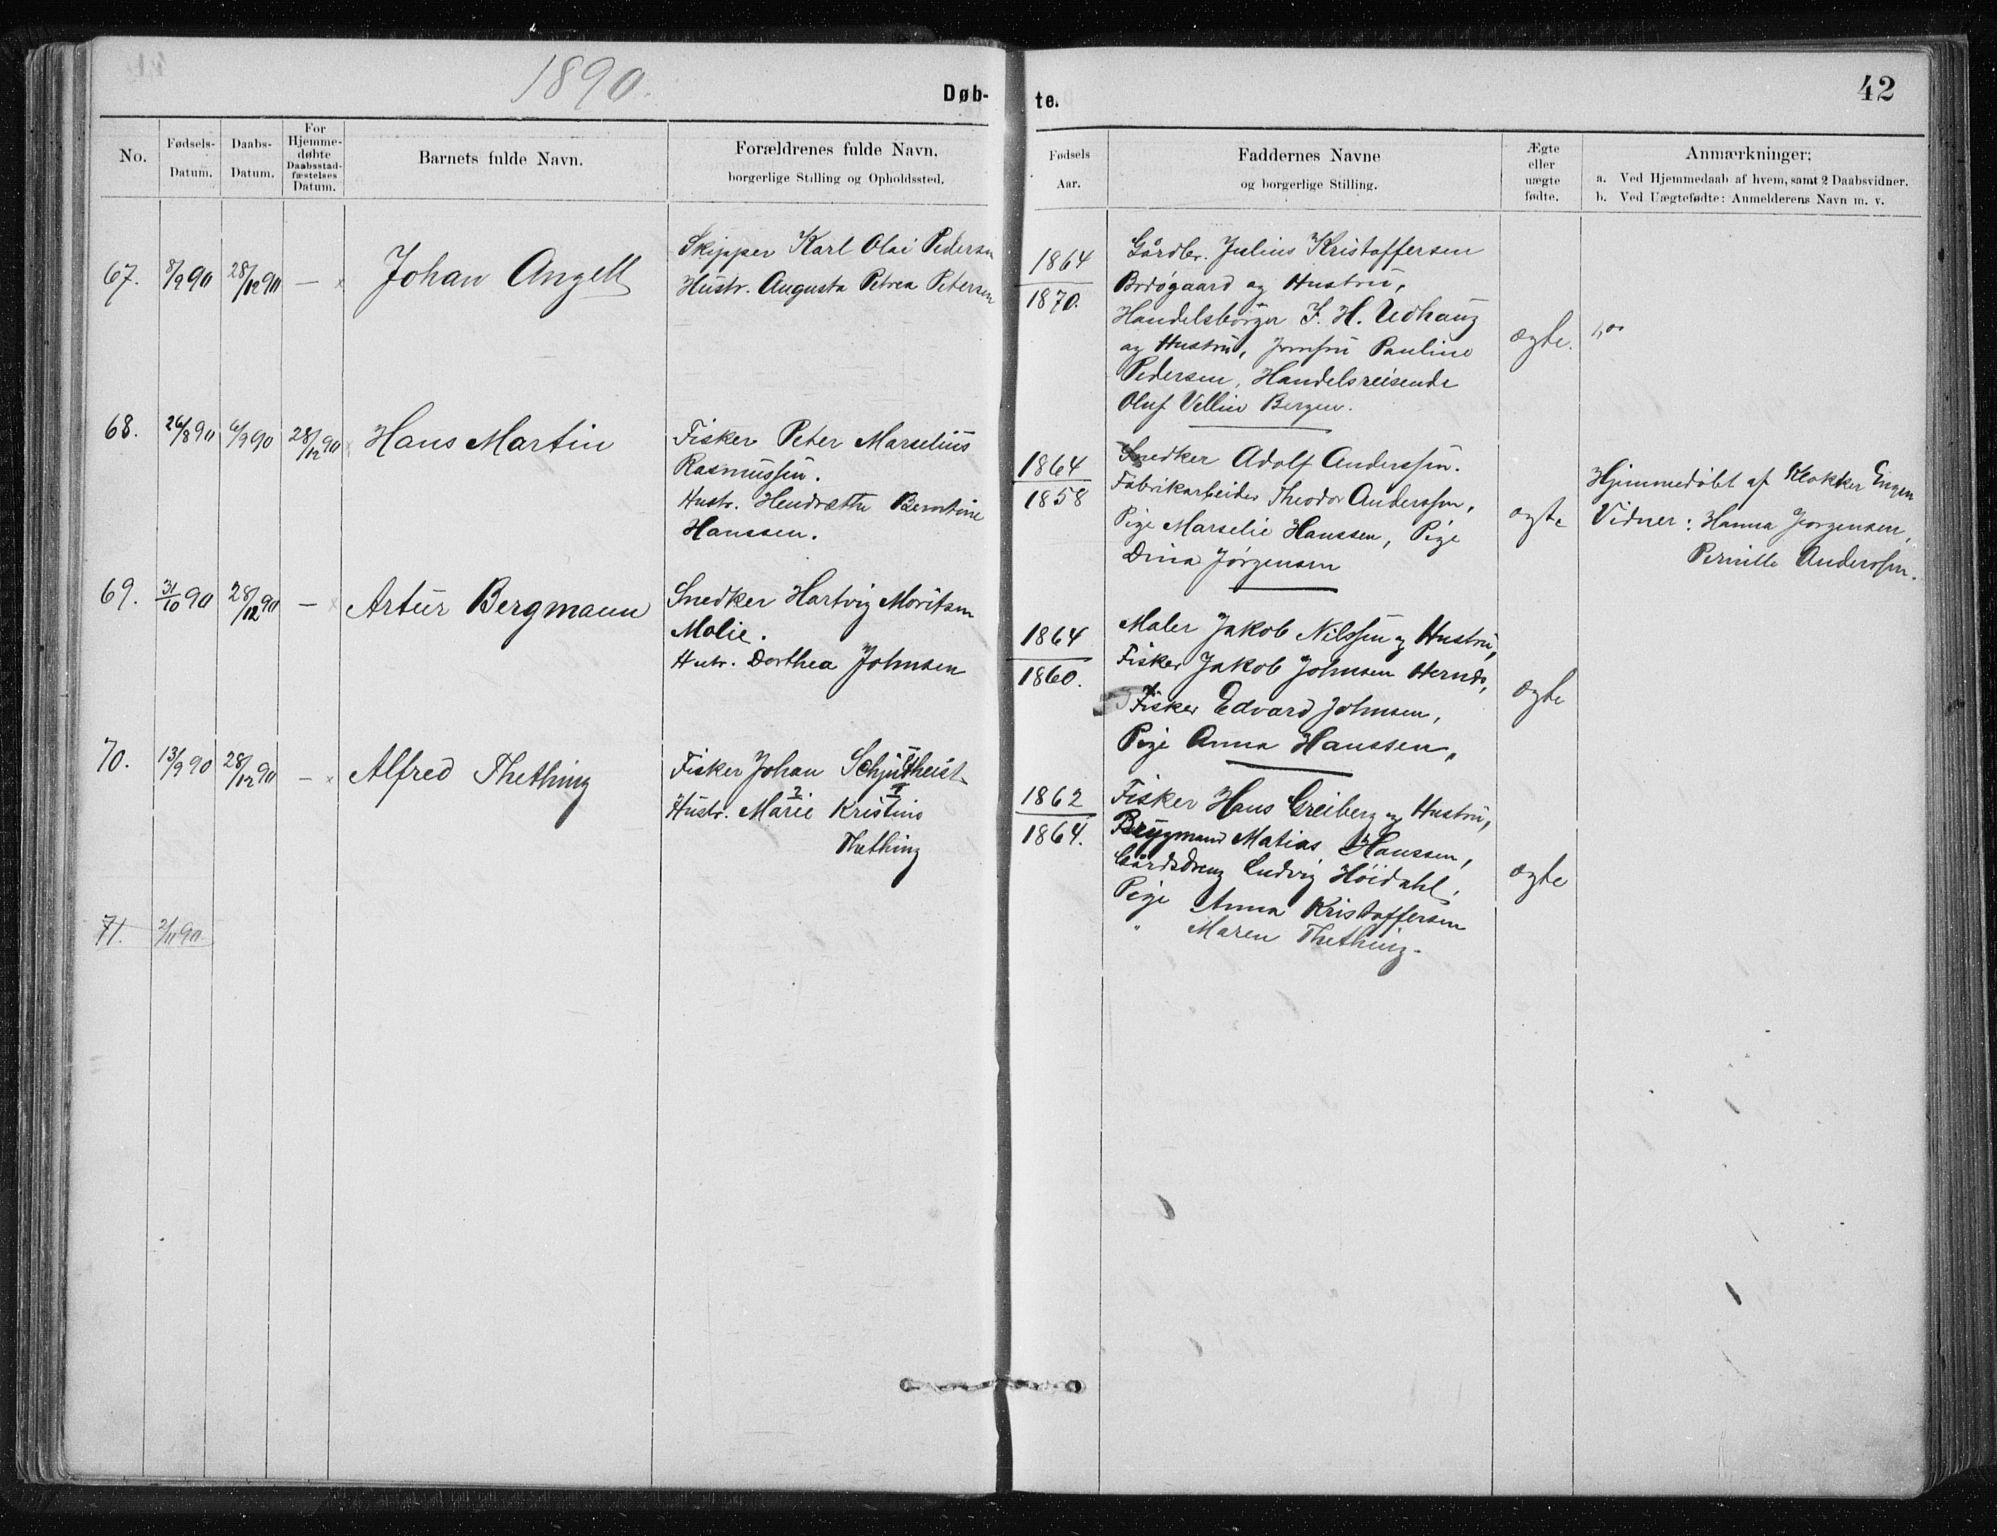 1890.
Døb-
te.
42
No.
Fødsels-
Datum.
Daabs-
Datum.
For
Hjemme-
døbte
Daabsstad-
fæstelses
Datum.
Barnets fulde Navn.
Forældrenes fulde Navn,
borgerlige Stilling og Opholdssted.
Fødsels
Aar.
Faddernes Navne
og borgerlige Stilling.
Ægte
eller
uægte
fødte.
Anmærkninger;
a. Ved Hjemmedaab af hvem, samt 2 Daabsvidner.
b. Ved Uægtefødte: Anmelderens Navn m. v.
67. 8/9 90 28/12 90 — Johan Angell
Skipper Karl Olai Pedersen
Hustr. Augusta Petrea Petersen
1864
1870.
Gårdbr. Julius Kristoffersen
og Hustru,
Handelsborger J. H. Udhaug
og Hustru, Jomfru Pauline
Pedersen, Handelsreisende
Oluf Vellin Bergen.
ægte.
68. 26/8 90 6/9 90 28/12 90 Hans Martin
Fisker Peter Marselius
Rasmussen.
Hustr. Hendrætte Berntine
Hanssen.
1864
1858
Snedker Adolf Anderssen.
Fabrikarbeider Theodor Anderssen,
Pige Marselie Hanssen, Pige
Dina Jørgensen
ægte
Hjemmedøbt af Klokker Engen
Vidner: Hanna Jørgensen,
Pernille Anderssen.
69. 31/10 90 28/12 90 — Artur Bergmann
Snedker Hartvig Moritsen
Molie.
Hustr. Dorthea Johnsen
1864
1860.
Maler Jakob Nilssen og Hustru,
Fisker Jakob Johnsen
Fisker Edvard Johnsen,
Pige Anna Hanssen,
ægte
70. 13/9 90 28/12 90 — Alfred Thething
Fisker Johan Schjultheist
2 1
Hustr. Marie Kristine
Thething
1862
1864.
Fisker Hans Greiberg og Hustru,
Brygmand Matias Hanssen,
Gårdsdreng Ludvig Høidahl,
Pige Anna Kristoffersen
" Maren Thething.
ægte
71. 2/11 90